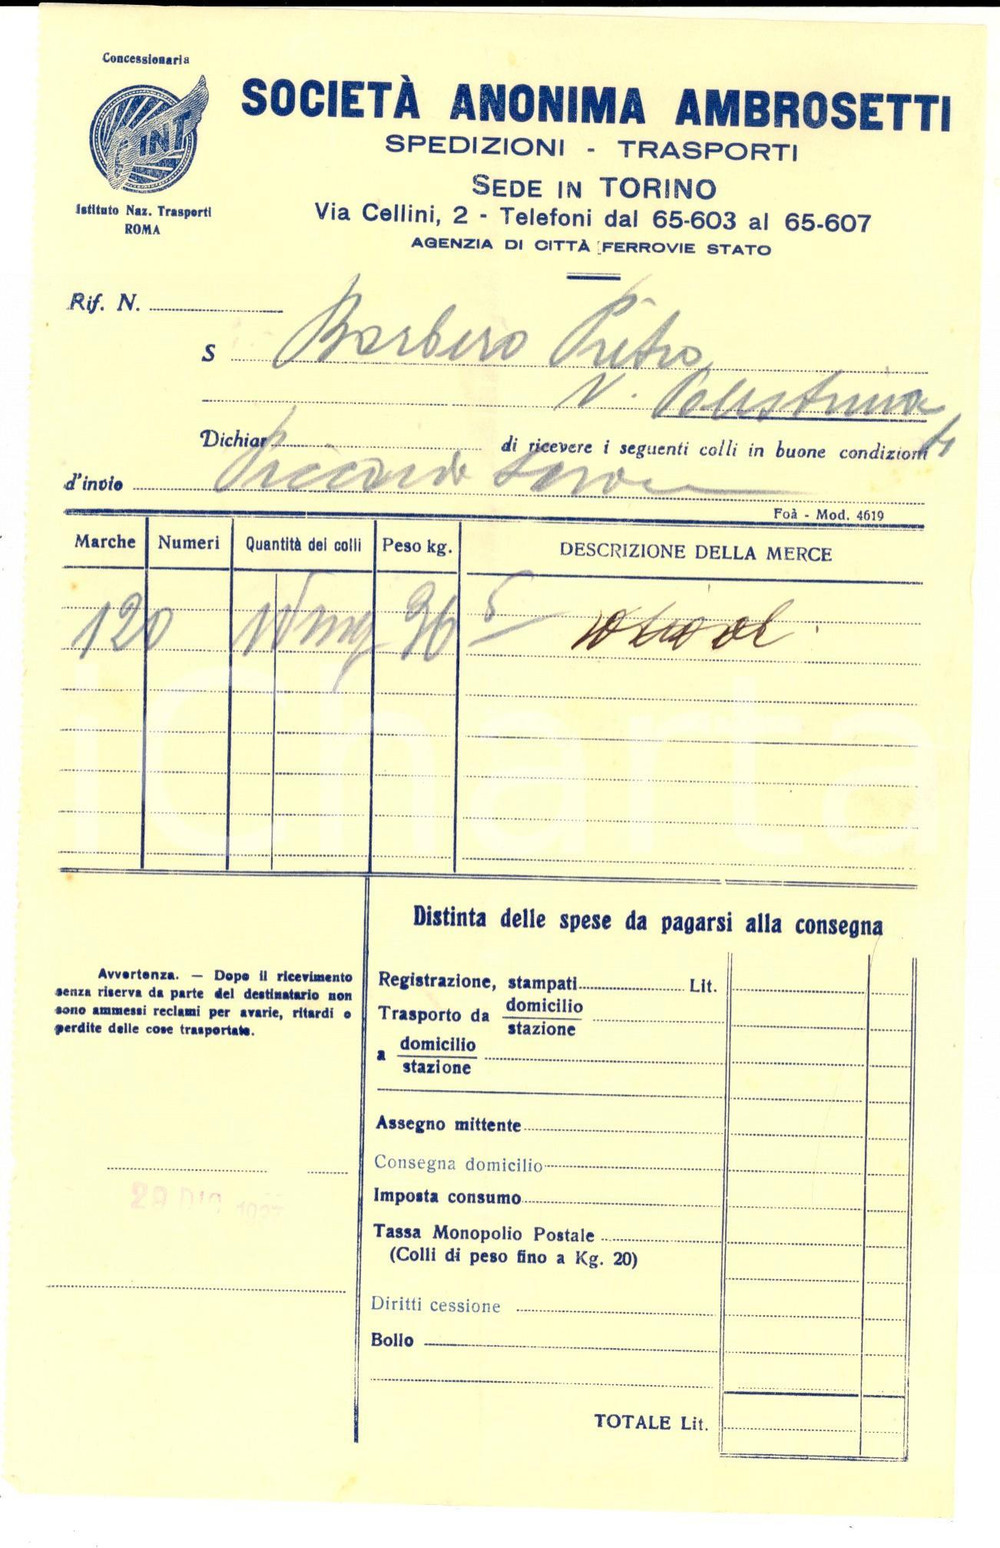 Concessionaria
INT
Istituto Naz. Trasporti
ROMA
SOCIETÀ ANONIMA AMBROSETTI
SPEDIZIONI - TRASPORTI
SEDE IN TORINO
Via Cellini, 2 - Telefoni dal 65-603 al 65-607
AGENZIA DI CITTÀ FERROVIE STATO
Rif. N.
S Barbero Pietro
V. Palestrina
Dichiar di ricevere i seguenti colli in buone condizioni
d'invio Riccardo
Foà - Mod. 4619
Marche Numeri Quantità dei colli Peso kg. DESCRIZIONE DELLA MERCE
120 96 5
iCharta
Distinta delle spese da pagarsi alla consegna
Avvertenza. — Dopo il ricevimento
senza riserva da parte del destinatario non
sono ammessi reclami per avarie, ritardi o
perdite delle cose trasportate.
29 DIC 1937
Registrazione, stampati Lit.
Trasporto da domicilio
stazione
a domicilio
stazione
Assegno mittente
Consegna domicilio
Imposta consumo
Tassa Monopolio Postale
(Colli di peso fino a Kg. 20)
Diritti cessione
Bollo
TOTALE Lit.